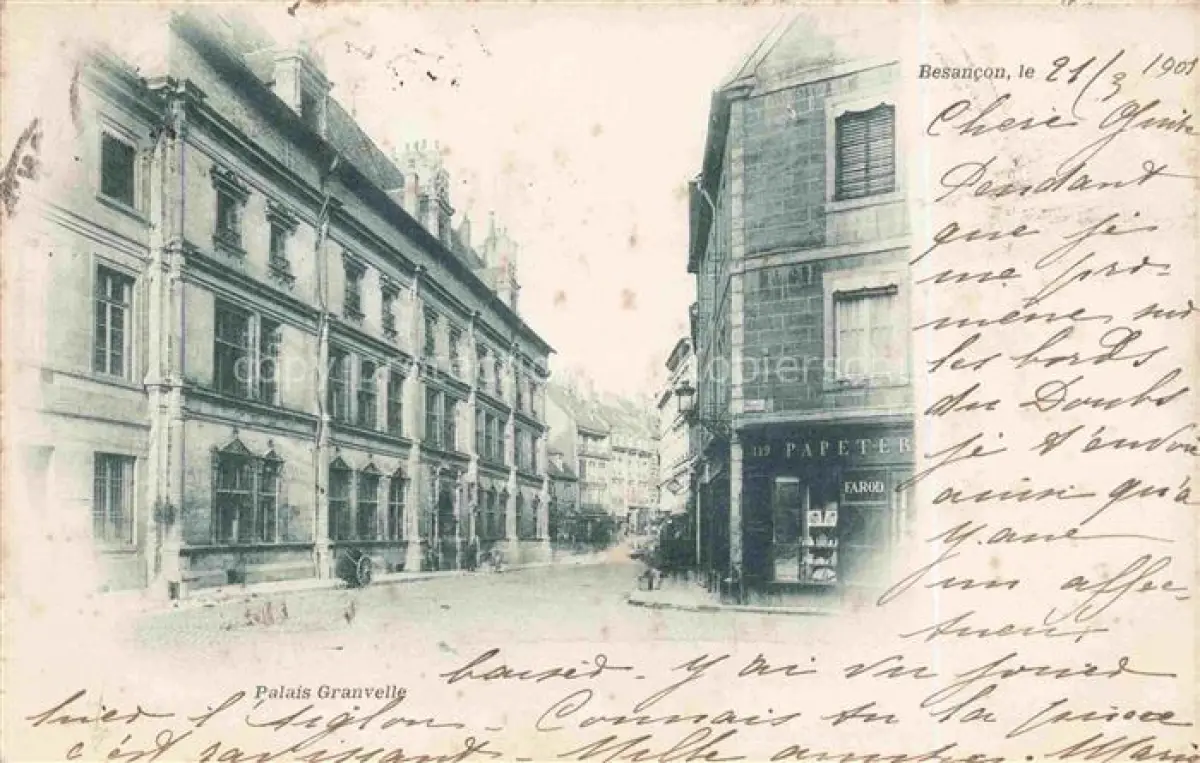 Besançon, le 21/3 1901
Chère
Pendant
que je
me pro-
mène sur
les bords
du Doubs
je t'envoie
ainsi qu'à
un affec-
tueux
baiser. J'y ai vu jouer
hier l'Aiglon - Connais tu la pièce
c'est ravissant - Mille amitiés. Marie
Palais Granvelle
119 PAPETER
FAROD